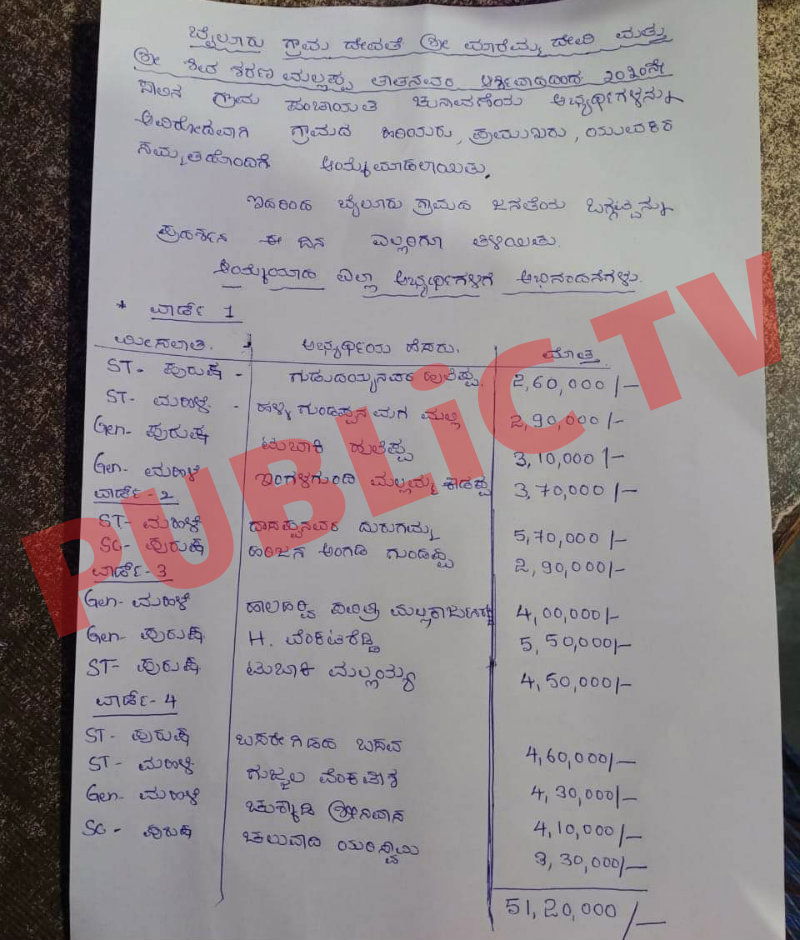 ಬೈಲೂರು ಗ್ರಾಮ ದೇವತೆ ಶ್ರೀ ಮಾರೆಮ್ಮ ದೇವಿ ಮತ್ತು
ಶ್ರೀ ಶಿವ ಶರಣ ಮಲ್ಲಪ್ಪ ತಾತನವರ ಆರ್ಶಿವಾದದಿಂದ ೨೦೨೦ನೇ
ಸಾಲಿನ ಗ್ರಾಮ ಪಂಚಾಯತಿ ಚುನಾವಣೆಯ ಅಭ್ಯರ್ಥಿಗಳನ್ನು
ಅವಿರೋದವಾಗಿ ಗ್ರಾಮದ ಹಿರಿಯರು, ಪ್ರಮುಖರು, ಯುವಕರ
ಸಮ್ಮತಿಹೊಂದಿಗೆ ಆಯ್ಕೆಮಾಡಲಾಯಿತು.
ಇದರಿಂದ ಬೈಲೂರು ಗ್ರಾಮದ ಜನತೆಯ ಒಗ್ಗಟ್ಟನ್ನು
ಪ್ರದರ್ಶನ ಈ ದಿನ ಎಲ್ಲರಿಗೂ ತಿಳಿಯಿತು.
ಆಯ್ಕೆಯಾದ ಎಲ್ಲಾ ಅಭ್ಯರ್ಥಿಗಳಿಗೆ ಅಭಿನಂದನೆಗಳು.
* ವಾರ್ಡ್ 1
ಮೀಸಲಾತಿ. ಅಭ್ಯರ್ಥಿಯ ಹೆಸರು. ಮೊತ್ತ
ST- ಪುರುಷ - ಗುಡುದಯ್ಯನವರ ಹುಲೆಪ್ಪ 2,60,000/-
ST- ಮಹಿಳೆ - ಹಳ್ಳಿ ಗುಂಡಪ್ಪನ ಮಗ ಮಲ್ಲಿ 2,90,000/-
Gen- ಪುರುಷ ಟುಬಾಕಿ ಹುಲೆಪ್ಪ 3,10,000/-
Gen- ಮಹಿಳೆ ಮಲ್ಲಮ್ಮ 3,70,000/-
ವಾರ್ಡ್-2
ST- ಮಹಿಳೆ ದಾಸಪ್ಪನವರ ದುರುಗಮ್ಮ 5,70,000/-
SC- ಪುರುಷ ಹರಿಜನ ಅಂಗಡಿ ಗುಂಡಪ್ಪ 2,90,000/-
ವಾರ್ಡ್-3
Gen- ಮಹಿಳೆ ಹಾಲಹರ್ವಿ 4,00,000/-
Gen- ಪುರುಷ H. ವೆಂಕಟರೆಡ್ಡಿ 5,50,000/-
ST- ಪುರುಷ ಟುಬಾಕಿ ಮಲ್ಲಯ್ಯ 4,50,000/-
ವಾರ್ಡ್-4
ST- ಪುರುಷ ಬಸರೀಗಿಡದ ಬಸವ 4,60,000/-
ST- ಮಹಿಳೆ ಗುಜ್ಜಲ ವೆಂಕಟೇಶ 4,30,000/-
Gen- ಮಹಿಳೆ ಶ್ರೀನಿವಾಸ 4,10,000/-
SC- ಪುರುಷ ಚಲುವಾದಿ ಯರಿಸ್ವಾಮಿ 3,30,000/-
51,20,000/-
PUBLiC TV